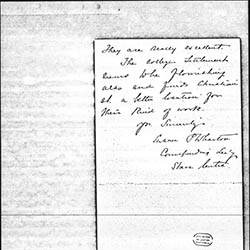 They are really excellent.
The College Settlement
seems to be flourishing
also and finds Christian
St. a better location for
their kind of work.
Sincerely,
Susan P. Wharton
Corresponding Sec'y